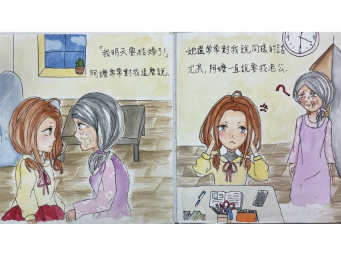 「我明天要結婚了!」
阿嬤常常對我這麼說。
她還常常對我說同樣的話
尤其,阿嬤一直說要找老公。